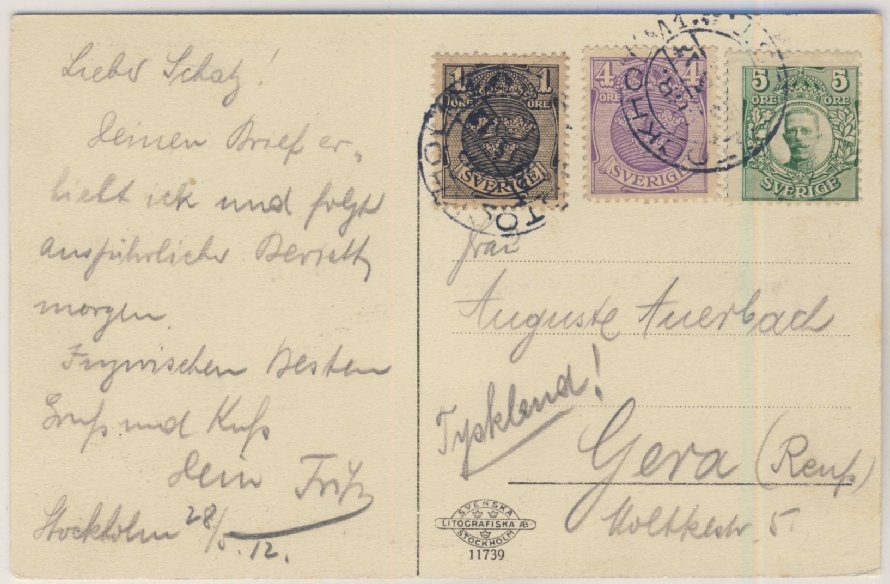 Lieber Schatz!
Deinen Brief er-
hielt ich und folgt
ausführlicher Bericht
morgen.
Inzwischen besten
Gruß und Kuß
Dein Fritz
Stockholm 28/5.12.
1 ÖRE 1 ÖRE
SVERIGE
4 ÖRE 4 ÖRE
SVERIGE
5 ÖRE 5 ÖRE
SVERIGE
Frau
Auguste Auerbach
Tyskland!
Gera (Reuß)
Moltkestr. 5
SVENSKA
LITOGRAFISKA AB
STOCKHOLM
11739